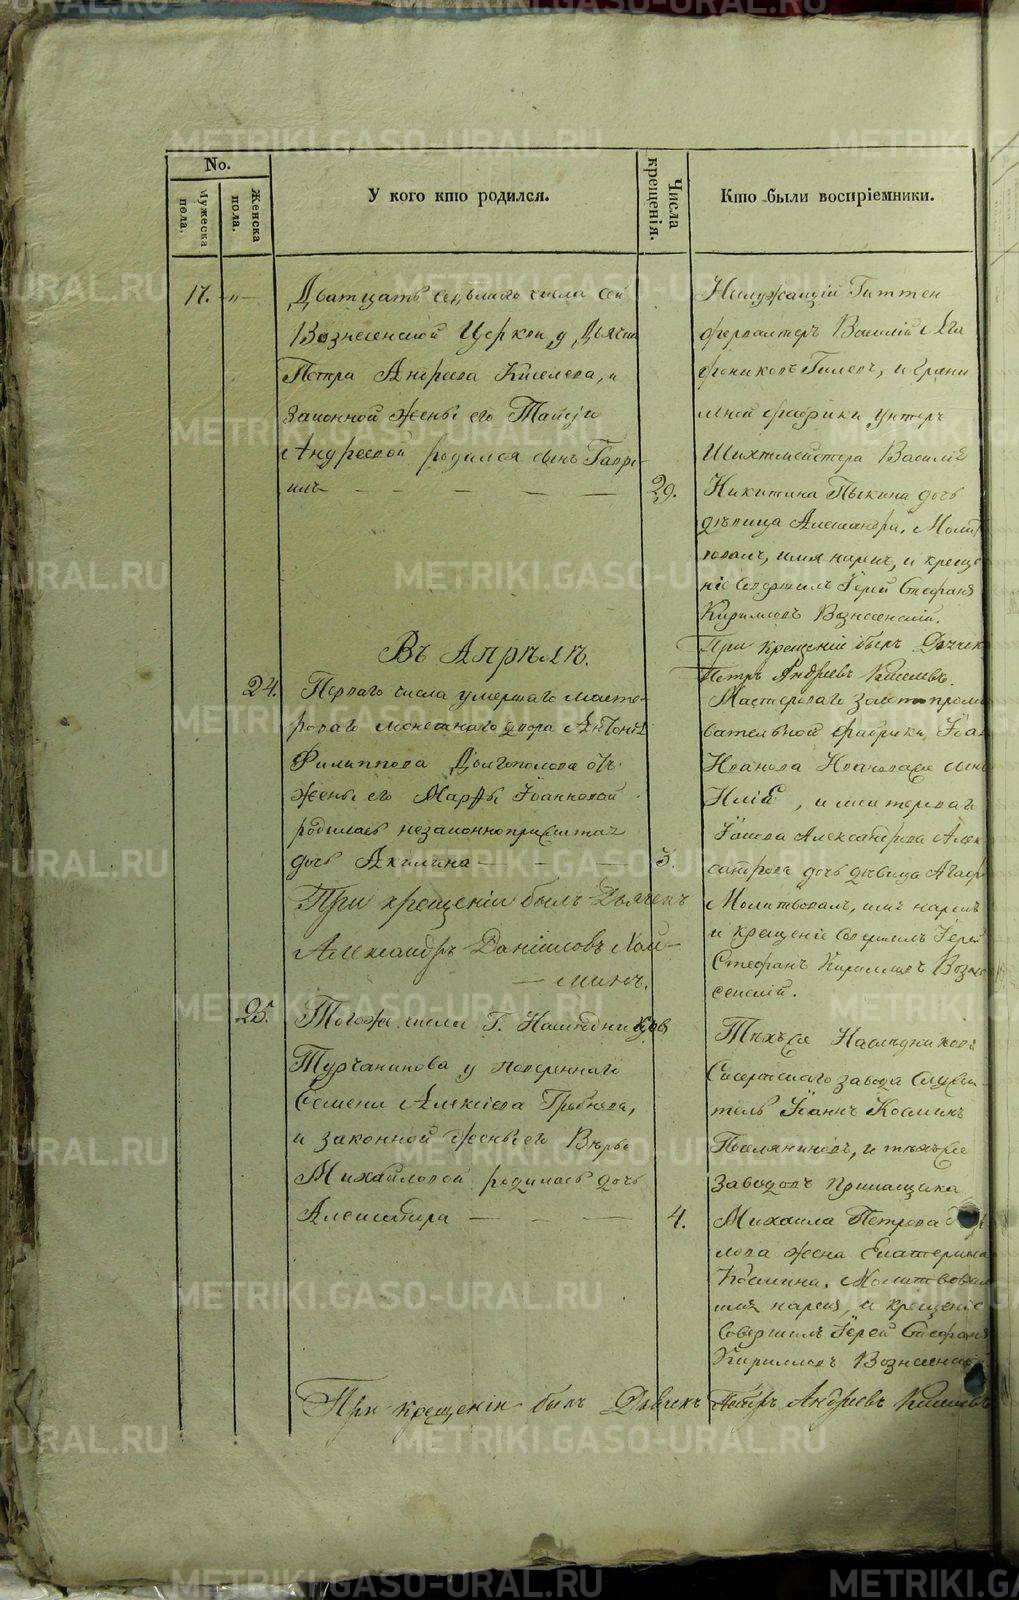 No.
Мужеска пола.
Женска пола.
У кого кто родился.
Числа крещенія.
Кто были воспріемники.
17. -„-
Дватцать седьмого числа сей
Вознесенской Церкви, у Дьячка
Петра Андреева Киселева, и
законной жены его Таисіи
Андреевой родился сынъ Гаврі-
илъ
29.
Неслужащій Гиттен
фервалтеръ Василій Ага
фониковъ Гилевъ, и Грани
льной фабрики Унтеръ
Шихтмейстера Василія
Никитина Пыкина дочь
дѣвица Александра. Молит
вовалъ, имя нарекъ, и креще
ніе совершилъ Іерей Стефанъ
Кирилловъ Вознесенскій.
При крещеніи былъ Дьячекъ
Петръ Андреевъ Киселевъ.
Въ Апрѣлѣ.
24.
Перваго числа умершаго масте-
роваго монетнаго двора Антона
Филиппова Долгополова отъ
жены его Марфы Іоанновой
родилась незаконноприжитая
дочь Акилина
3.
При крещеніи былъ Дьячекъ
Александръ Даніиловъ
Мастероваго золотопромы
вательной фабрики Іоан
Иванова сынъ
Илія, и мастероваго
Александрова Алек
сандрова дочь дѣвица Агаф
Молитвовалъ, имя нарекъ
и крещеніе совершилъ Іерей
Стефанъ Кирилловъ Возне
сенскій.
25.
Тогожъ числа Г. Наслѣдниковъ
Турчанинова у повереннаго
Семена Алексіева Грибнева,
и законной жены его Вѣры
Михайловой родилась дочь
Александра
4.
Тѣхъже Наслѣдниковъ
Сысертскаго завода служи-
тель Іоаннъ Косминъ
и тѣхъже
заводовъ Прикащика
Михаила Петрова
лова жена Екатерина
Космина. Молитвовалъ
имя нарекъ, и крещеніе
совершилъ Іерей Стефанъ
Кирилловъ Вознесенскій
При крещеніи былъ Дьячекъ Петръ Андреевъ Киселевъ
METRIKI.GASO-URAL.RU